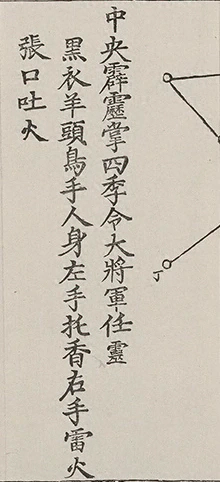 中央霹靂掌四季令大將軍任靈
黑衣羊頭鳥手人身左手托香右手雷火
張口吐火